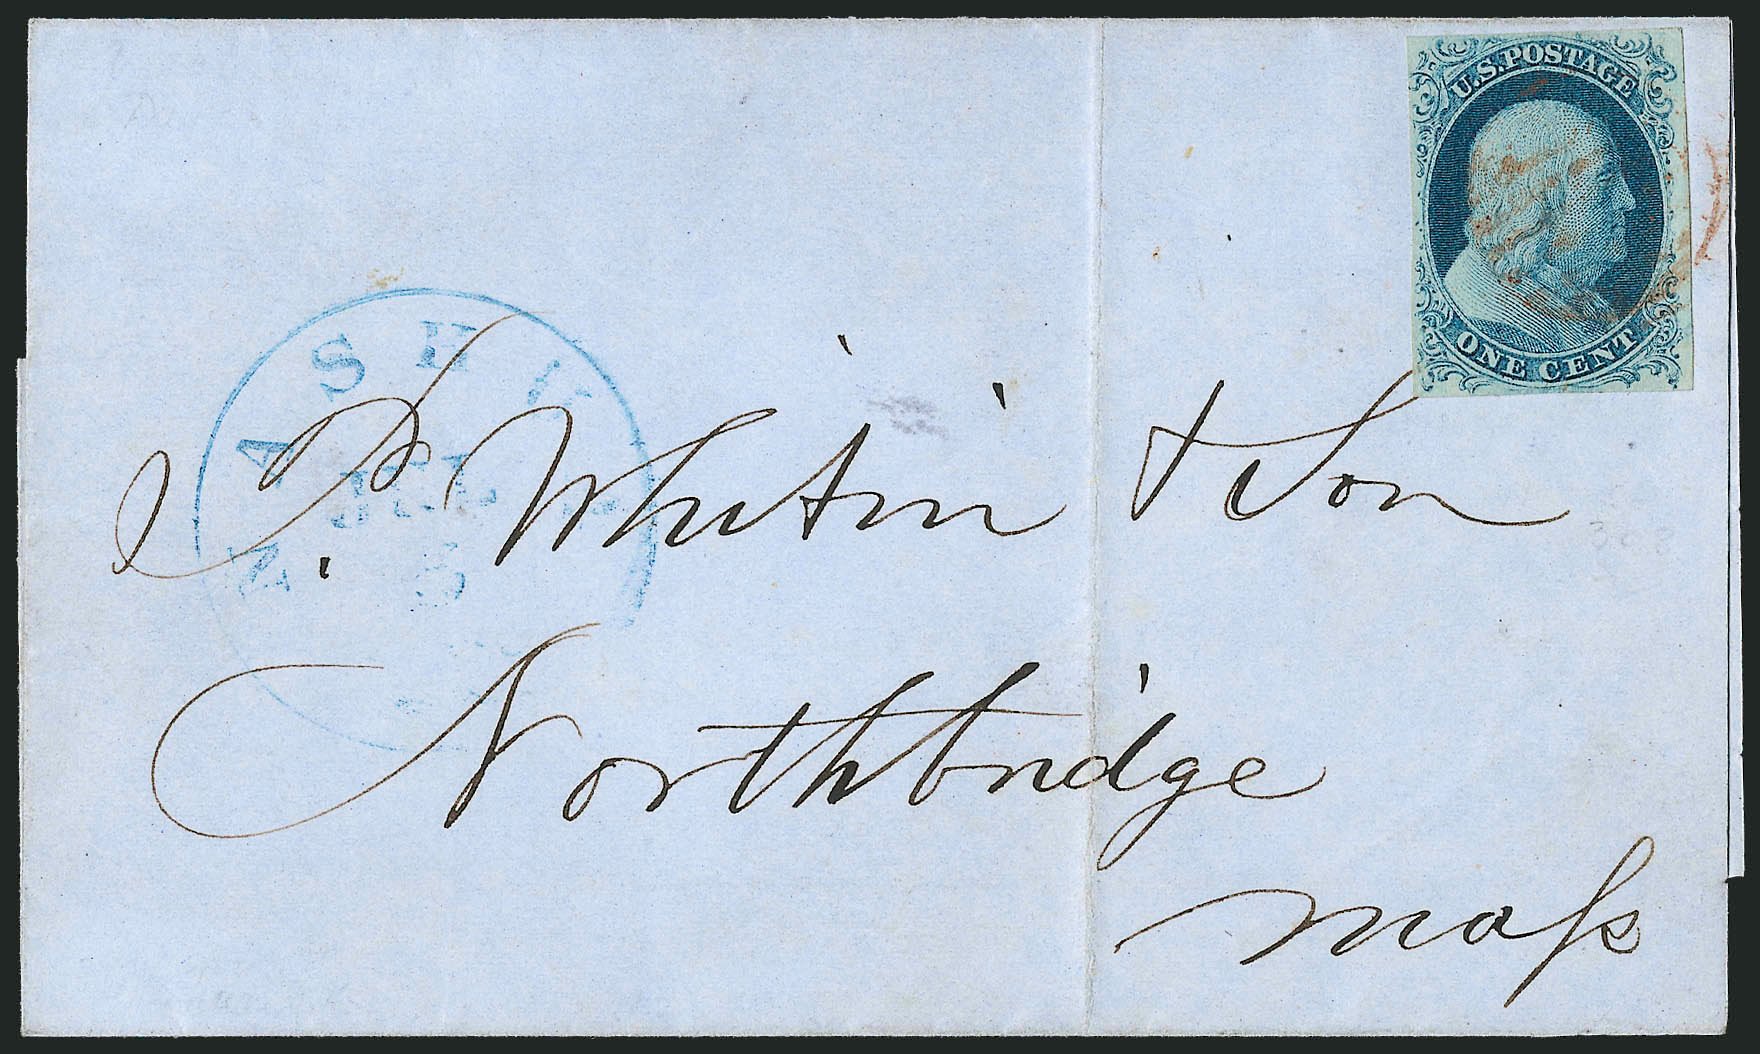 U.S. POSTAGE
ONE CENT
NASHV
JUL
5
P. Whitin & Son
Northbridge
Mass